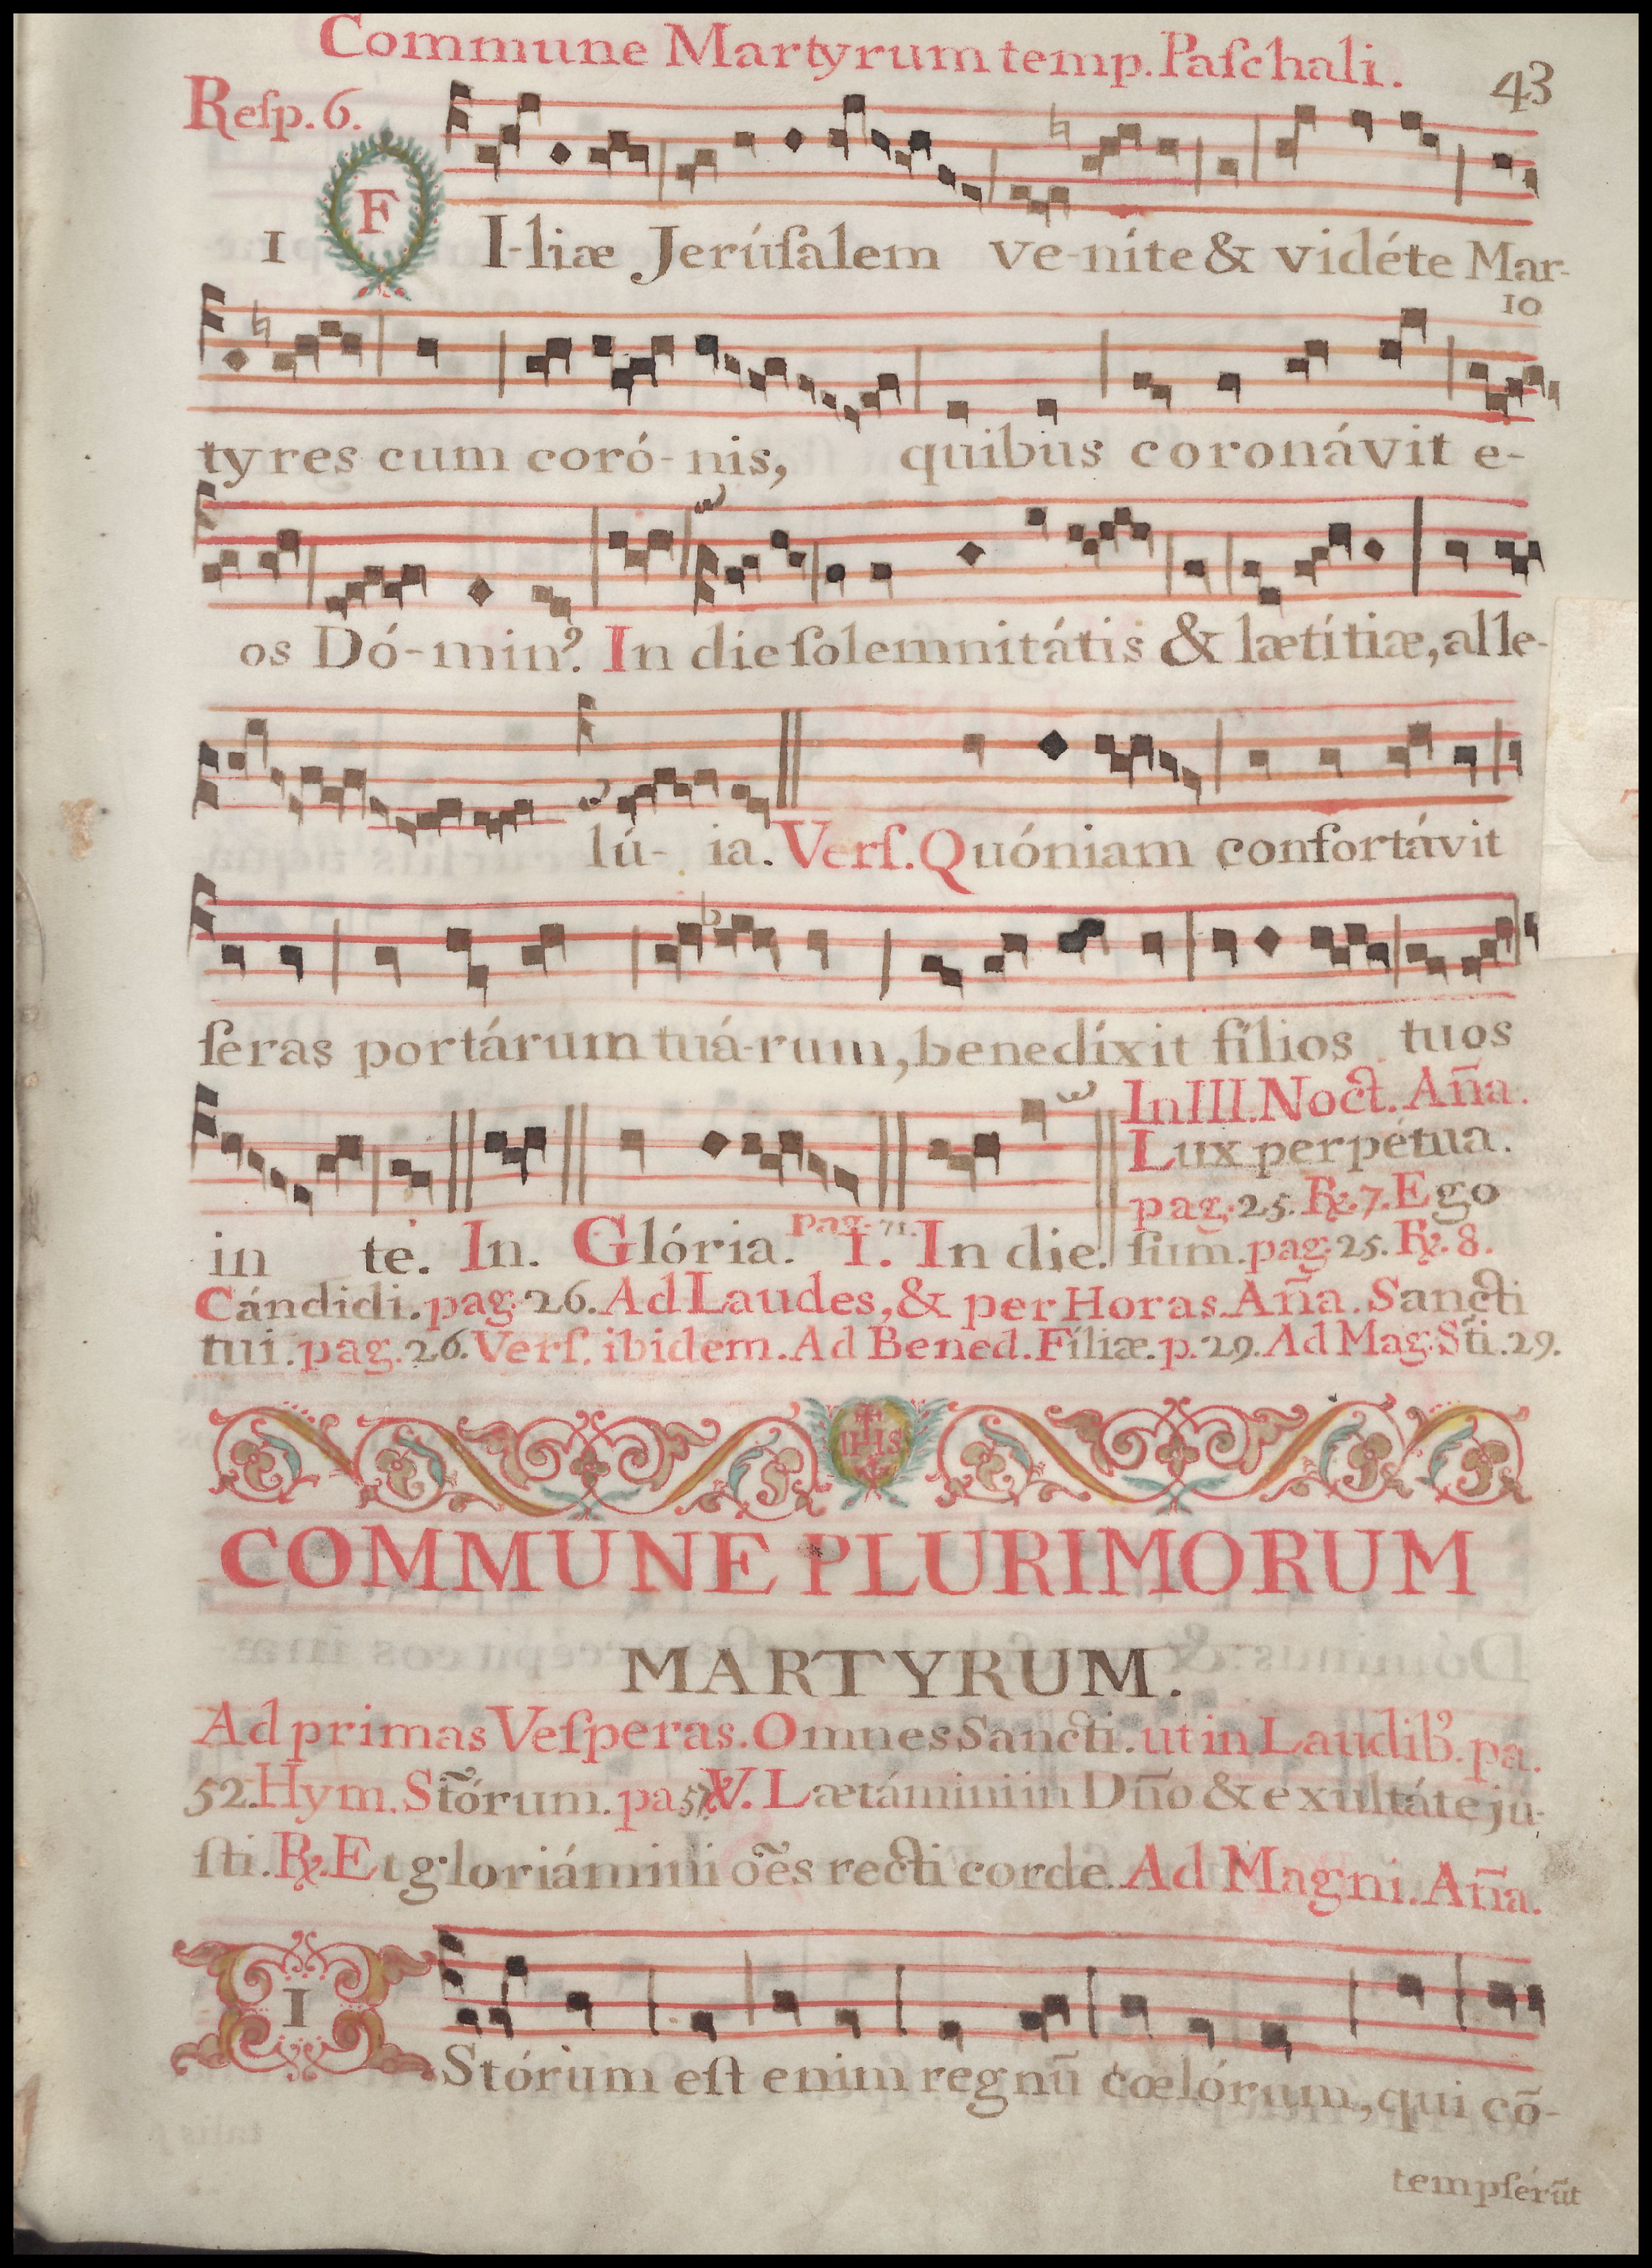 Commune Martyrum temp. Paſchali.
43
Reſp. 6.
1 F I-liæ Jerúſalem ve-níte & vidéte Mar-
10
tyres cum coró-nis, quibus coronávit e-
os Dó-minꝰ. In die ſolemnitátis & lætítiæ, alle-
lú- ia. Verſ. Quóniam confortávit
ſeras portárum tuá-rum, benedíxit fílios tuos
In III. Noct. Aña.
Lux perpétua.
pag. 25. ℟. 7. Ego
in te. In. Glória. pag. 71. 1. In die. ſum. pag. 25. ℟. 8.
Cándidi. pag. 26. Ad Laudes, & per Horas. Aña. Sancti
tui. pag. 26. Verſ. ibidem. Ad Bened. Fíliæ. p. 29. Ad Mag: Sti. 29.
IHS
COMMUNE PLURIMORUM
MARTYRUM.
Ad primas Veſperas. Omnes Sancti. ut in Laudibꝰ. pa.
52. Hym. Stórum. pa 57. ℣. Lætámini in Dño & exultáte ju-
ſti. ℟. Et gloriámini oẽs recti corde. Ad Magni. Aña.
I Stórum eſt enim regnũ cœlórum, qui cõ-
tempſérũt